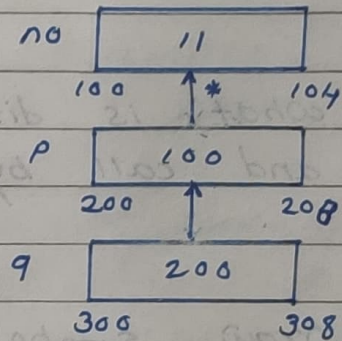 no 11
100 * 104
p 100
200 208
q 200
300 308